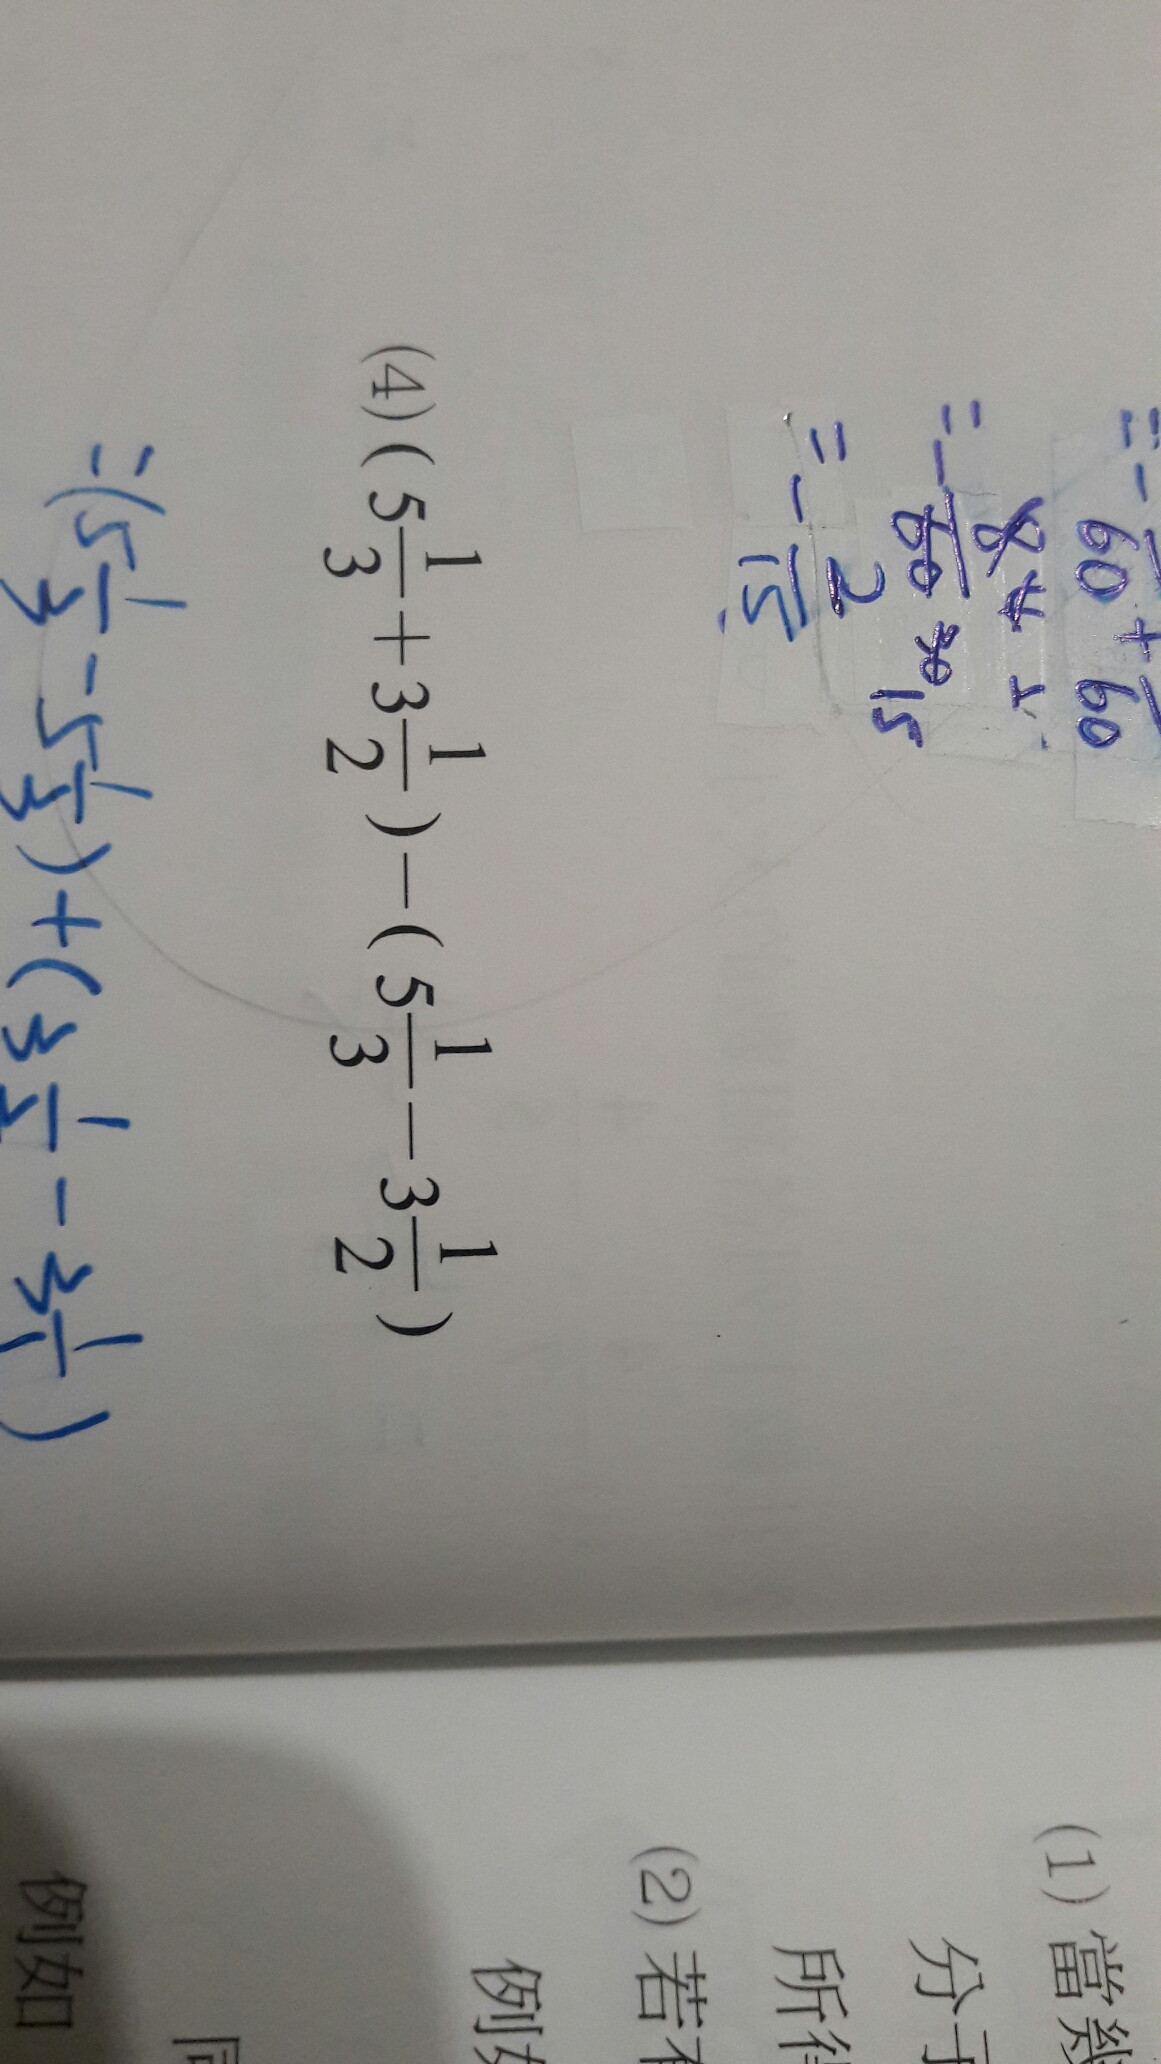 = - /60 + /60
= - 8/60
= - 2/15
(4) ( 5 1/3 + 3 1/2 ) - ( 5 1/3 - 3 1/2 )
= ( 5 1/3 - 5 1/3 ) + ( 3 1/ - 3 1/ )
(1) 當幾
分子
所得
(2) 若有
例如
同
例如